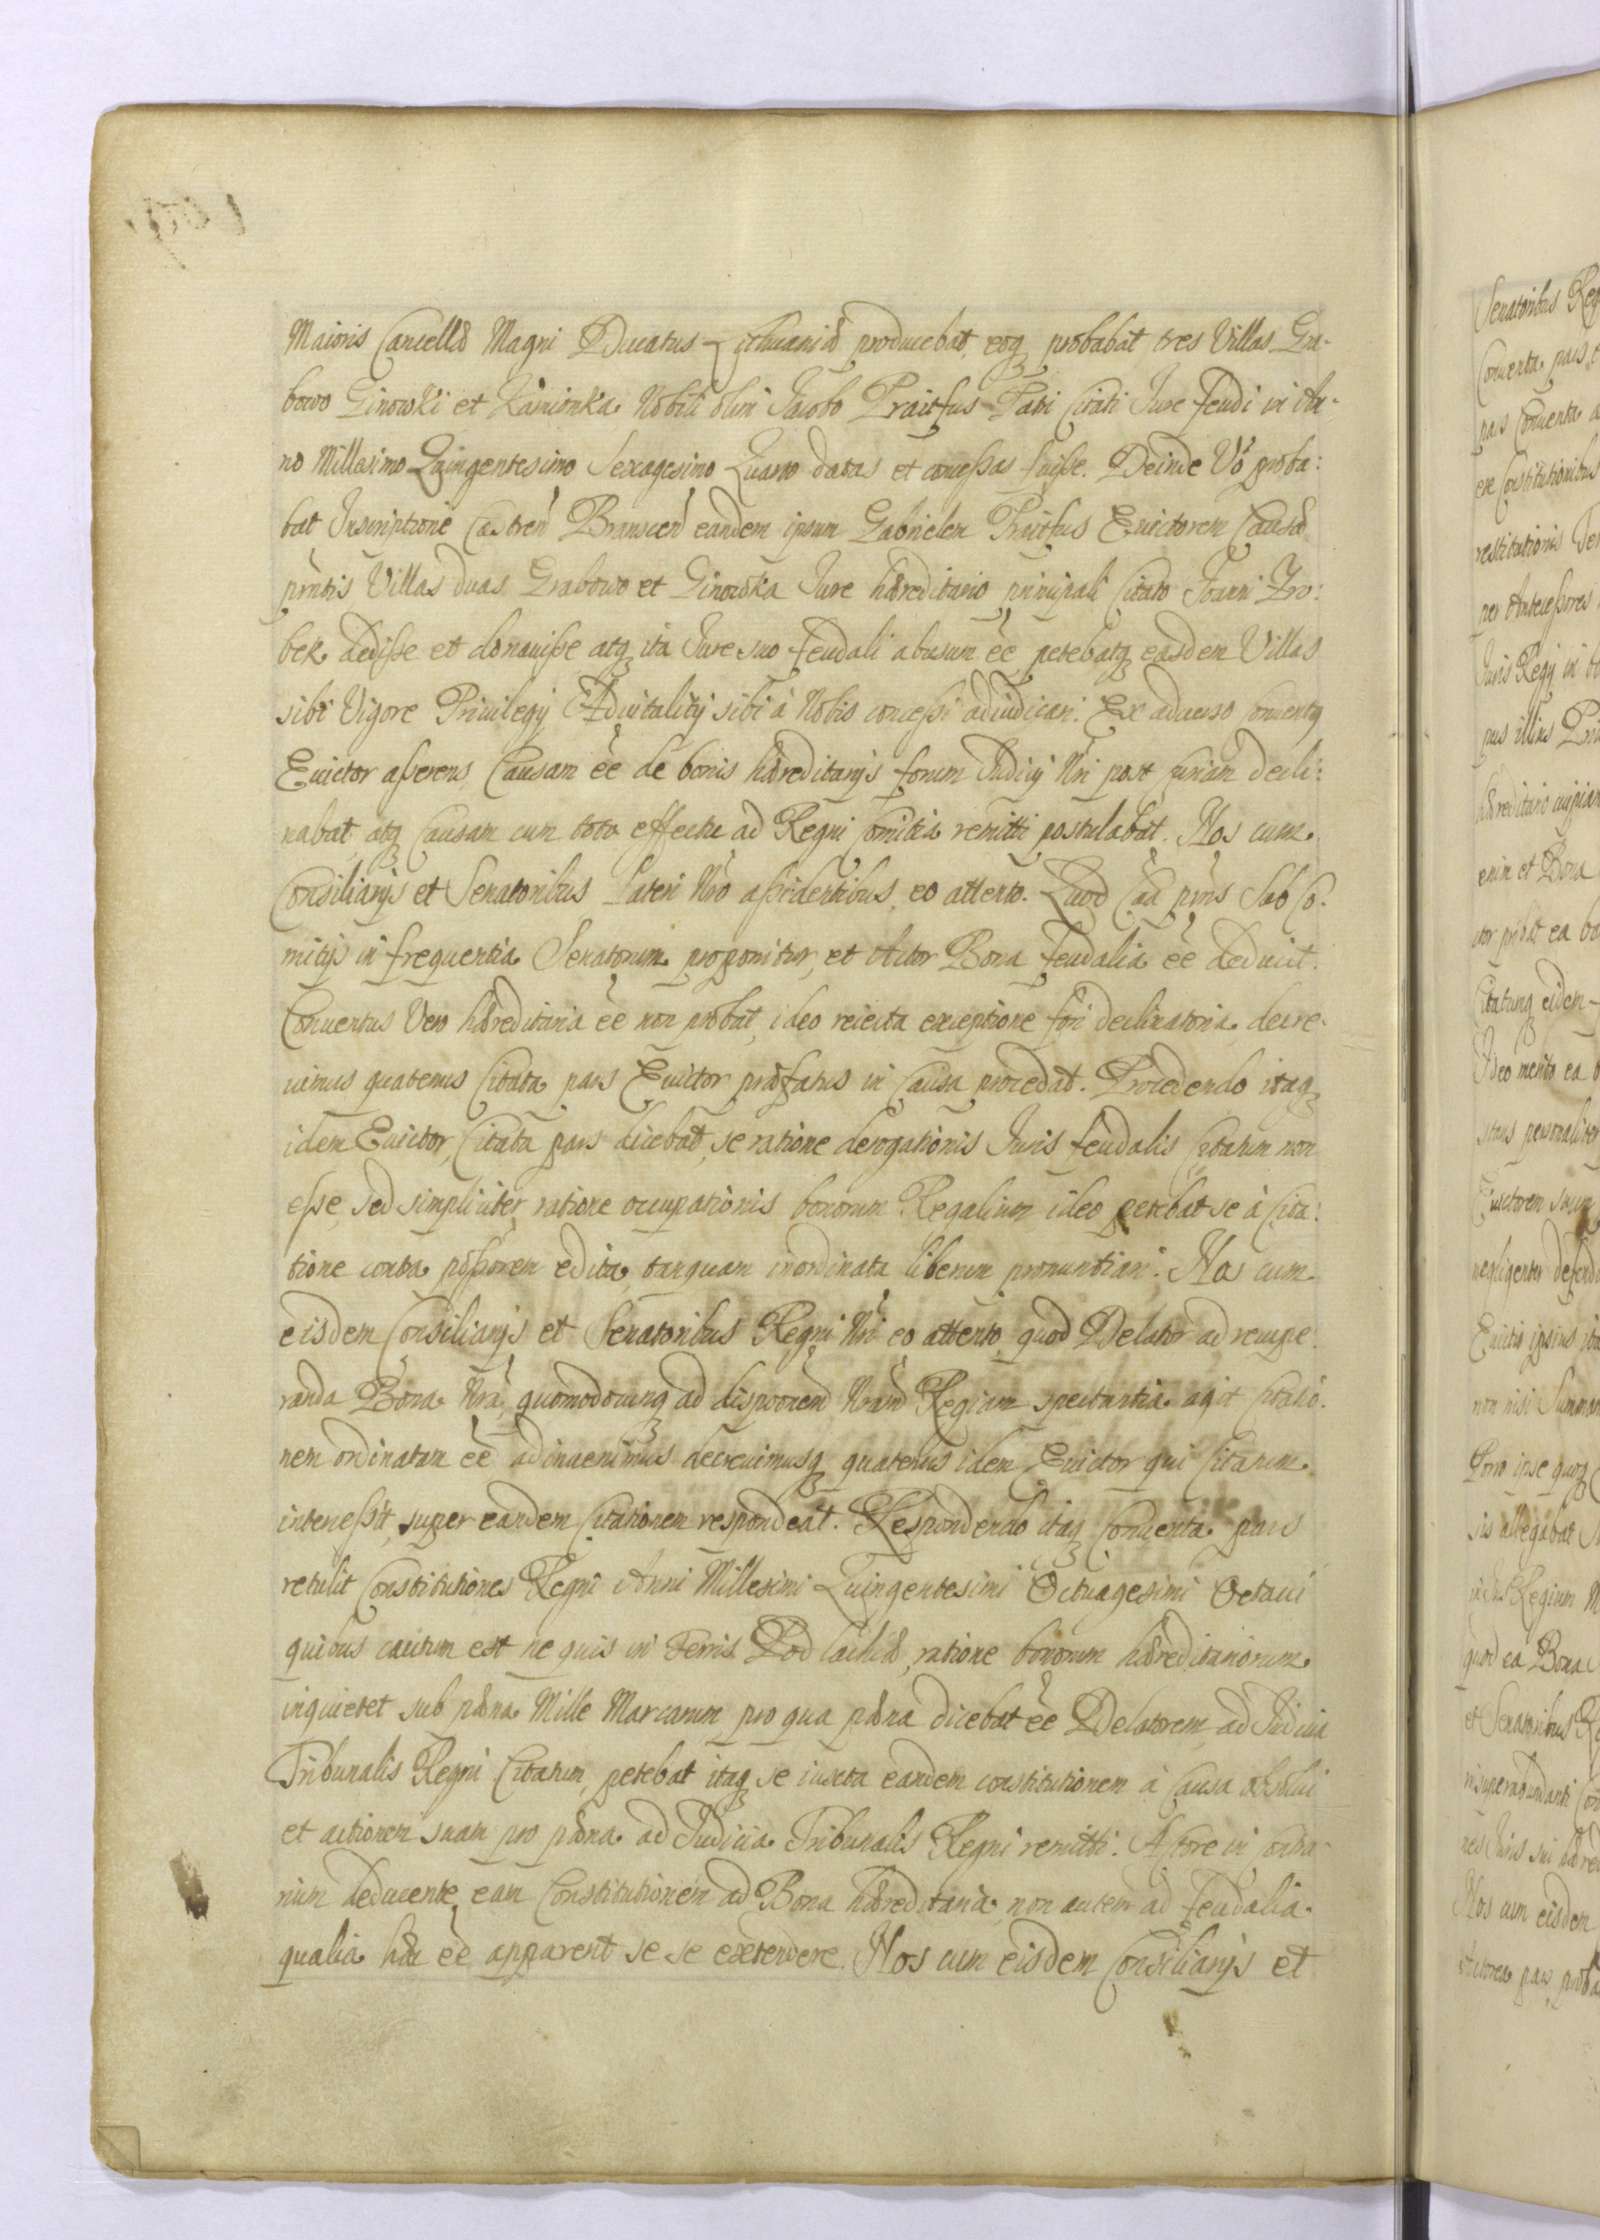 Maioris Cancellæ Magni Ducatus Lithuaniæ producebat, eoq₃ probabat tres Villas Gra-
bowo Ginowski et Kamionka Nobili olim Jacobo Praitfus Patri Citati Jure feudi in An-
no Millesimo Quingentesimo Sexagesimo Quarto datas et concessas fuisse. Deinde Vo proba:
bat Inscriptione Castren Branscen eandem ipsum Gabrielem Praitfus Euictorem Causæ
pñtis Villas duas Grabowo et Ginowska Jure hæreditario principali Citato Joanni Pro:
bek dedisse et donauisse atq₃ ita Jure suo feudali abusum eē petebatq₃ easdem Villas
sibi Vigore Priuilegij Aduitalitij sibi à Nobis concessi adiudicari. Ex aduerso Conuentq
Euictor asserens, Causam eē de bonis hæreditarijs forum Judicij Nri post curiam decli:
nabat, atq₃ Causam cum toto effectu ad Regni Comitia remitti postulabat. Nos cum
Consiliarijs et Senatoribus Lateri Nro assidentibus, eo attento. Quod Caã pñs Sub Co-
mitijs in frequentia Senatorum proponitur, et Actor Bona feudalia eē deducit.
Conuentus Vero hæreditaria eē non probat, ideo reiecta exceptione fori declinatoria, decre-
uimus quatenus Citata pars Euictor præfatus in Causa procedat. Procedendo itaq₃
idem Euictor, Citata pars dicebat, se ratione derogationis Juris feudalis Citatum non
esse, sed simpliciter ratione occupationis bonorum Regalium ideo petebat se à Cita:
tione contra possorem edita, tanquam inordinata liberum pronuntiari. Nos cum
eisdem Consiliarijs et Senatoribus Regni Nri eo attento, quod Delator ad recupe:
randa Bona Nra, quomodocunq₃ ad disponem Nram Regiam spectantia agit Citatio-
nem ordinatam eē adinuenimus decreuimusq₃ quatenus idem Euictor qui Citatum
intercessit, super eandem Citationem respondeat. Respondendo itaq₃ Conuenta pars
retulit Constitutiones Regni Anni Millesimi Quingentesimi Octuagesimi Octaui
quibus cautum est ne quis in Terris Podlachiæ, ratione bonorum hæreditariorum
inquietet sub pæna Mille Marcarum pro qua pæna dicebat eē Delatorem ad Judicia
Tribunalis Regni Citatum, petebat itaq₃ se iuxta eandem constitutionem à Causa absolui
et actionem suam pro pæna ad Judicia Tribunalis Regni remitti. Actore in contra-
rium deducente eam Constitutionem ad Bona hæreditaria, non autem ad feudalia
qualia hæc eē apparent se se extendere. Nos cum eisdem Consiliarijs et